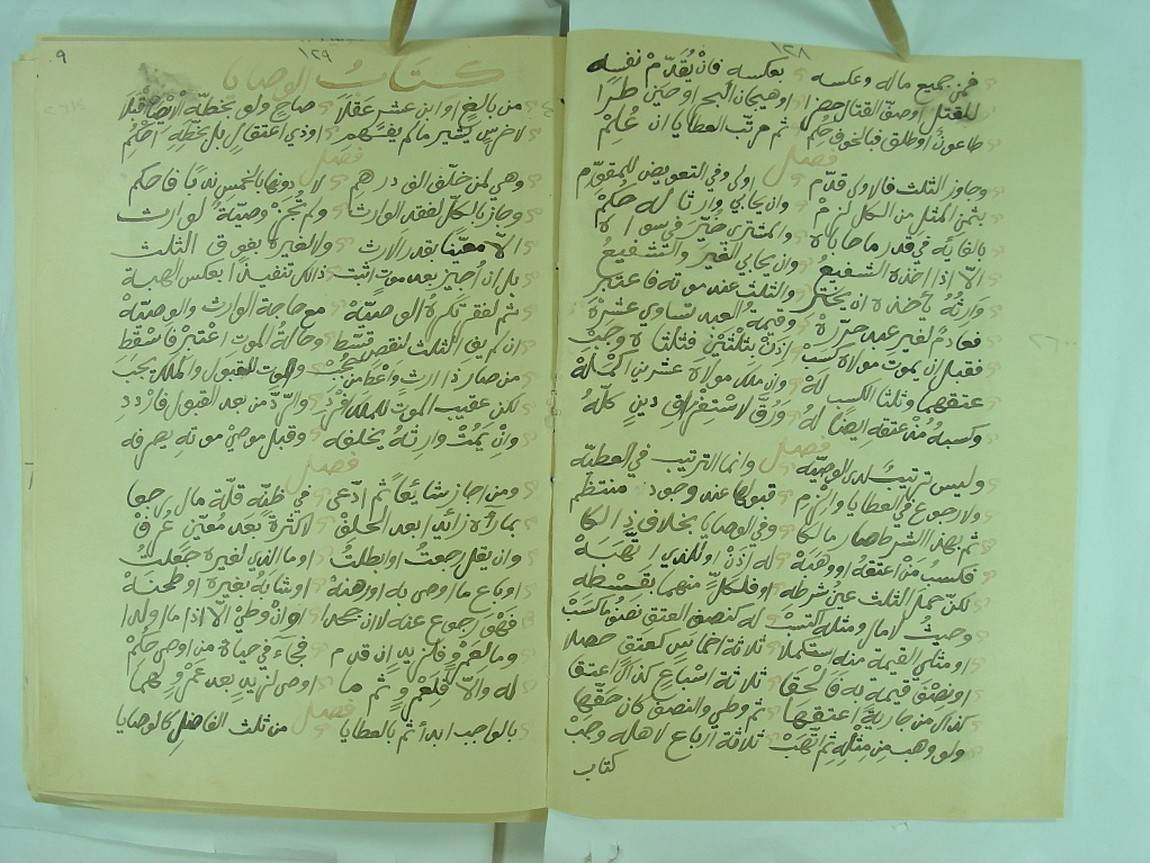 ١٢٨
فمن جميع ماله وعكسه بعكسه فان يُقَدَّمْ نفسه
للقتل اوصفّ القتال حضرا اوهيجان البحر او حين طرا
طاعونٌ او طلق فبالخوف حُكِم ثم مرتّب العطايا ان عُلِمْ
فصل
وجاوز الثلث فالاولى قدّم اولى وفي التعويض للمقوّم
بثمن المثل من الكل لزمْ وان يحابي وارثا له حُكمْ
في قدر ما حاباه والمشتري خُيّر في سواه
الّا اذا اخذه الشفيعُ وان يحابي الغير والتشفيعُ
وارثُهُ يأخذه ان يختر والثلث عند موته فاعتبر
فعادمٌ لغير عبد حرّرهْ وقيمة العبد تساوي عشرهْ
فقبل ان يموت مولاه كسبْ
عتقهما وثلثا الكسب لهْ وان ملك مولاه عشرين اكمالهْ
وكسبه مُنْذ عتقه ايضًا لهُ ورُقَّ لاستغراق دينٍ كلّهُ
فصل
وليس ترتيبٌ لدى الوصيّه وانما الترتيب في العطيّه
ولا رجوع في العطايا والزم قبولها عند وجود منتظم
ثم بهذا الشرط صار مالكا وفي الوصايا بخلاف ذالكا
فكسبُ من اعتقهُ او وهبهْ له اذنْ او للذي اتّهبهْ
لكنّ حمل الثلث عين شرطه او فلكلٍّ منهما بقسطه
وحيثُ لا مال ومثله اكتسبْ له كنصف العتق نصفُ ما كسبْ
او مثلي القيمة منه استكملا ثلاثة اخماس كعتقٍ حصلا
او نصف قيمة به فألحقا ثلاثة اسباع كذاك اعتقا
كذاك من جارية اعتقها ثم وطي والنصف كان حقّها
ولو وهب من مثله ثم اتّهبْ ثلاثة ارباع لاهله وجبْ
كتاب
٩
١٢٩
كتابُ الوصايا
من بالغٍ او ابن عشر عقلا صاح ولو بخطّه الايصا اقبلا
لاخرسٍ يشير ما لم يفهم او ذي اعتقالٍ بل بخطّه احكم
فصل
وهي لمن خلّف الف درهم لا دونها بالخمس ندبًا فاحكم
وجاز بالكلّ لفقد الوارث ولم تجز وصيّةٌ لوارث
الّا معيّنًا بقدر الارث ولا لغيره بفوق الثلث
بل ان أُجيز بعد موت اثبت ذالك تنفيذا بعكس الهبة
ثم لفقر تكرهُ الوصيّهْ مع حاجة الوارث والوصيّهْ
ان لم يفِ الثلث لنقص قسّط وحالةُ الموت اعتبر فاسقط
من صار ذا ارثٍ واعط من حجب والموت للقبول والملك يجب
لكن عقيب الموت للملك والردّ من بعد القبول فاردد
وانْ يمُتْ وارثهُ يخلفه وقبل موصيْ موتهِ يصرفه
فصل
ومن اجاز شائعاً ثم ادّعى في ظنّه قلّة مال رجعا
بما رآه زائدا بعد الحلفْ لا كثرةً بعد معيّن عرفْ
وان يقل رجعتُ او ابطلتُ او ما الذي لغيره جعلتُ
او باع ما اوصى به او رهنهْ او شابه بغيره او طحنهْ
فهْو رجوع عنه لا ان جحدا او انْ وطئ الّا اذا ما ولدا
وما لعَمْروٍ فلزيد ان قدم فجاء في حياة من اوصى حُكمْ
له والّا فلعَمْروٍ ثم ما اوصى لزيدٍ بعد عمْروٍ لهما
فصل
بالواجب ابدأ ثم بالعطايا من ثلث الفاضل كالوصايا